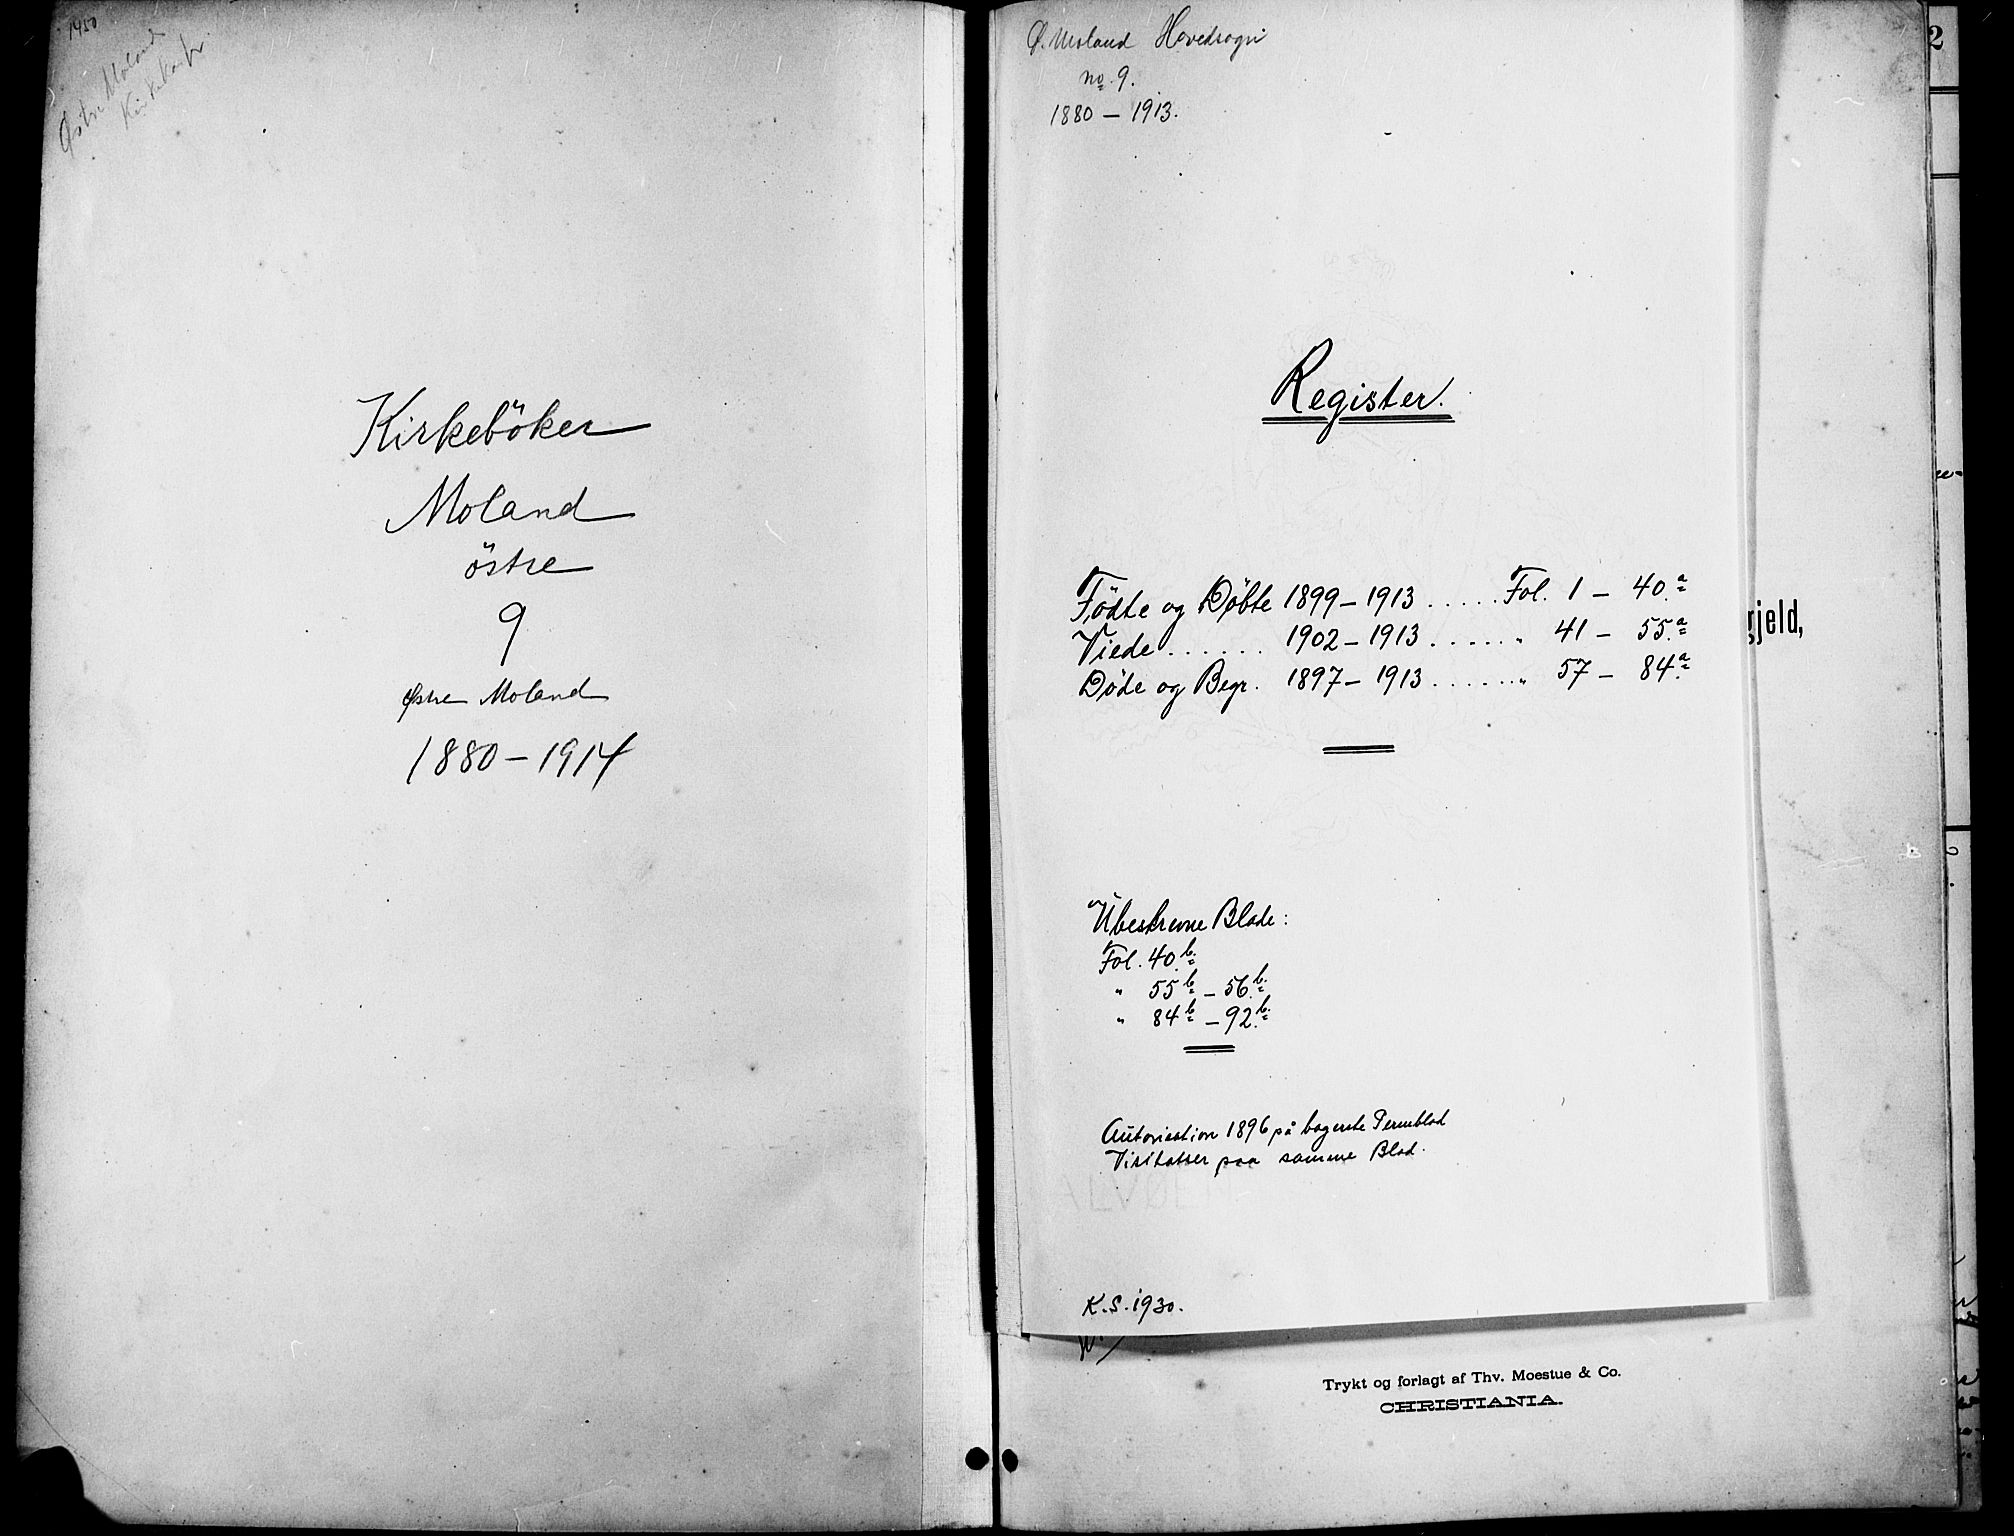 1450
Østre Moland
Kirkebøker
Moland
östre
9
Østre Moland
1880 - 1914
Ø. Moland Hovedsogn
no. 9.
1880 - 1913.
Register.
Födte og Döbte 1899 - 1913 ..... Fol. 1 - 40.a
Viede ...... 1902 - 1913 ...... " 41 - 55.a
Døde og Begr. 1897 - 1913 ...... " 57 - 84.a
Ubeskrevne Blade:
Fol. 40.b
" 55b - 56.b
" 84b - 92.b
Autorisation 1896 på bagerste Permblad
Visitatser paa samme Blad.
ALVØEN
K.S. 1930.
gjeld,
2
Trykt og forlagt af Thv. Moestue & Co.
CHRISTIANIA.